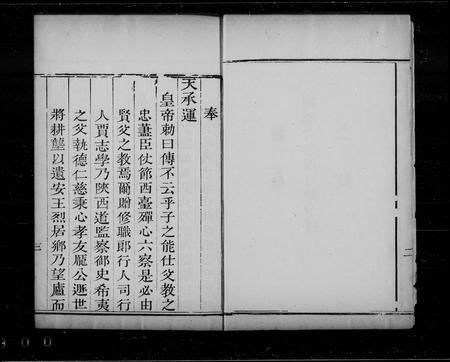 奉
天承運
皇帝勅曰傳不云乎子之能仕父教之
忠藎臣仗節西臺殫心六察是必由
賢父之教焉爾贈修職郎行人司行
人賈志學乃陝西道監察御史希夷
之父執德仁慈秉心孝友龐公遯世
將耕壟以遺安王烈居鄉乃望廬而
三
二
000